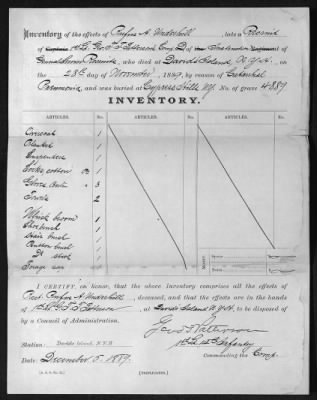 Inventory of the effects of Rufus A. Underhill, late a Recruit
of Captain 1st Lt. Geo. T. T. Patterson Comp. D of the Instruction Regiment of
General Service Recruits, who died at Davids Island N.Y.H., on
the 28th day of November, 1889, by reason of
Pneumonia, and was buried at Cypress Hills N.Y. No. of grave 4889
INVENTORY.
ARTICLES. No. ARTICLES. No. ARTICLES. No.
Overcoat 1
Blanket 1
Suspenders 1
Socks, cotton 1
Gloves 3
Towels 2
Whisk broom 1
Shoe brush 1
Hair brush 1
Button brush 1
stick 1
Forage cap 1
MONEY:
I CERTIFY, on honor, that the above Inventory comprises all the effects
of Rect. Rufus A. Underhill, deceased, and that the effects are in the hands
of 1st Lt. G. T. T. Patterson, at Davids Island N.Y.H., to be disposed of
by a Council of Administration.
Geo. T. T. Patterson
1st Lt. 14th Infantry
Station: Davids Island, N.Y.H. Commanding the Comp.
Date: December 5, 1889.